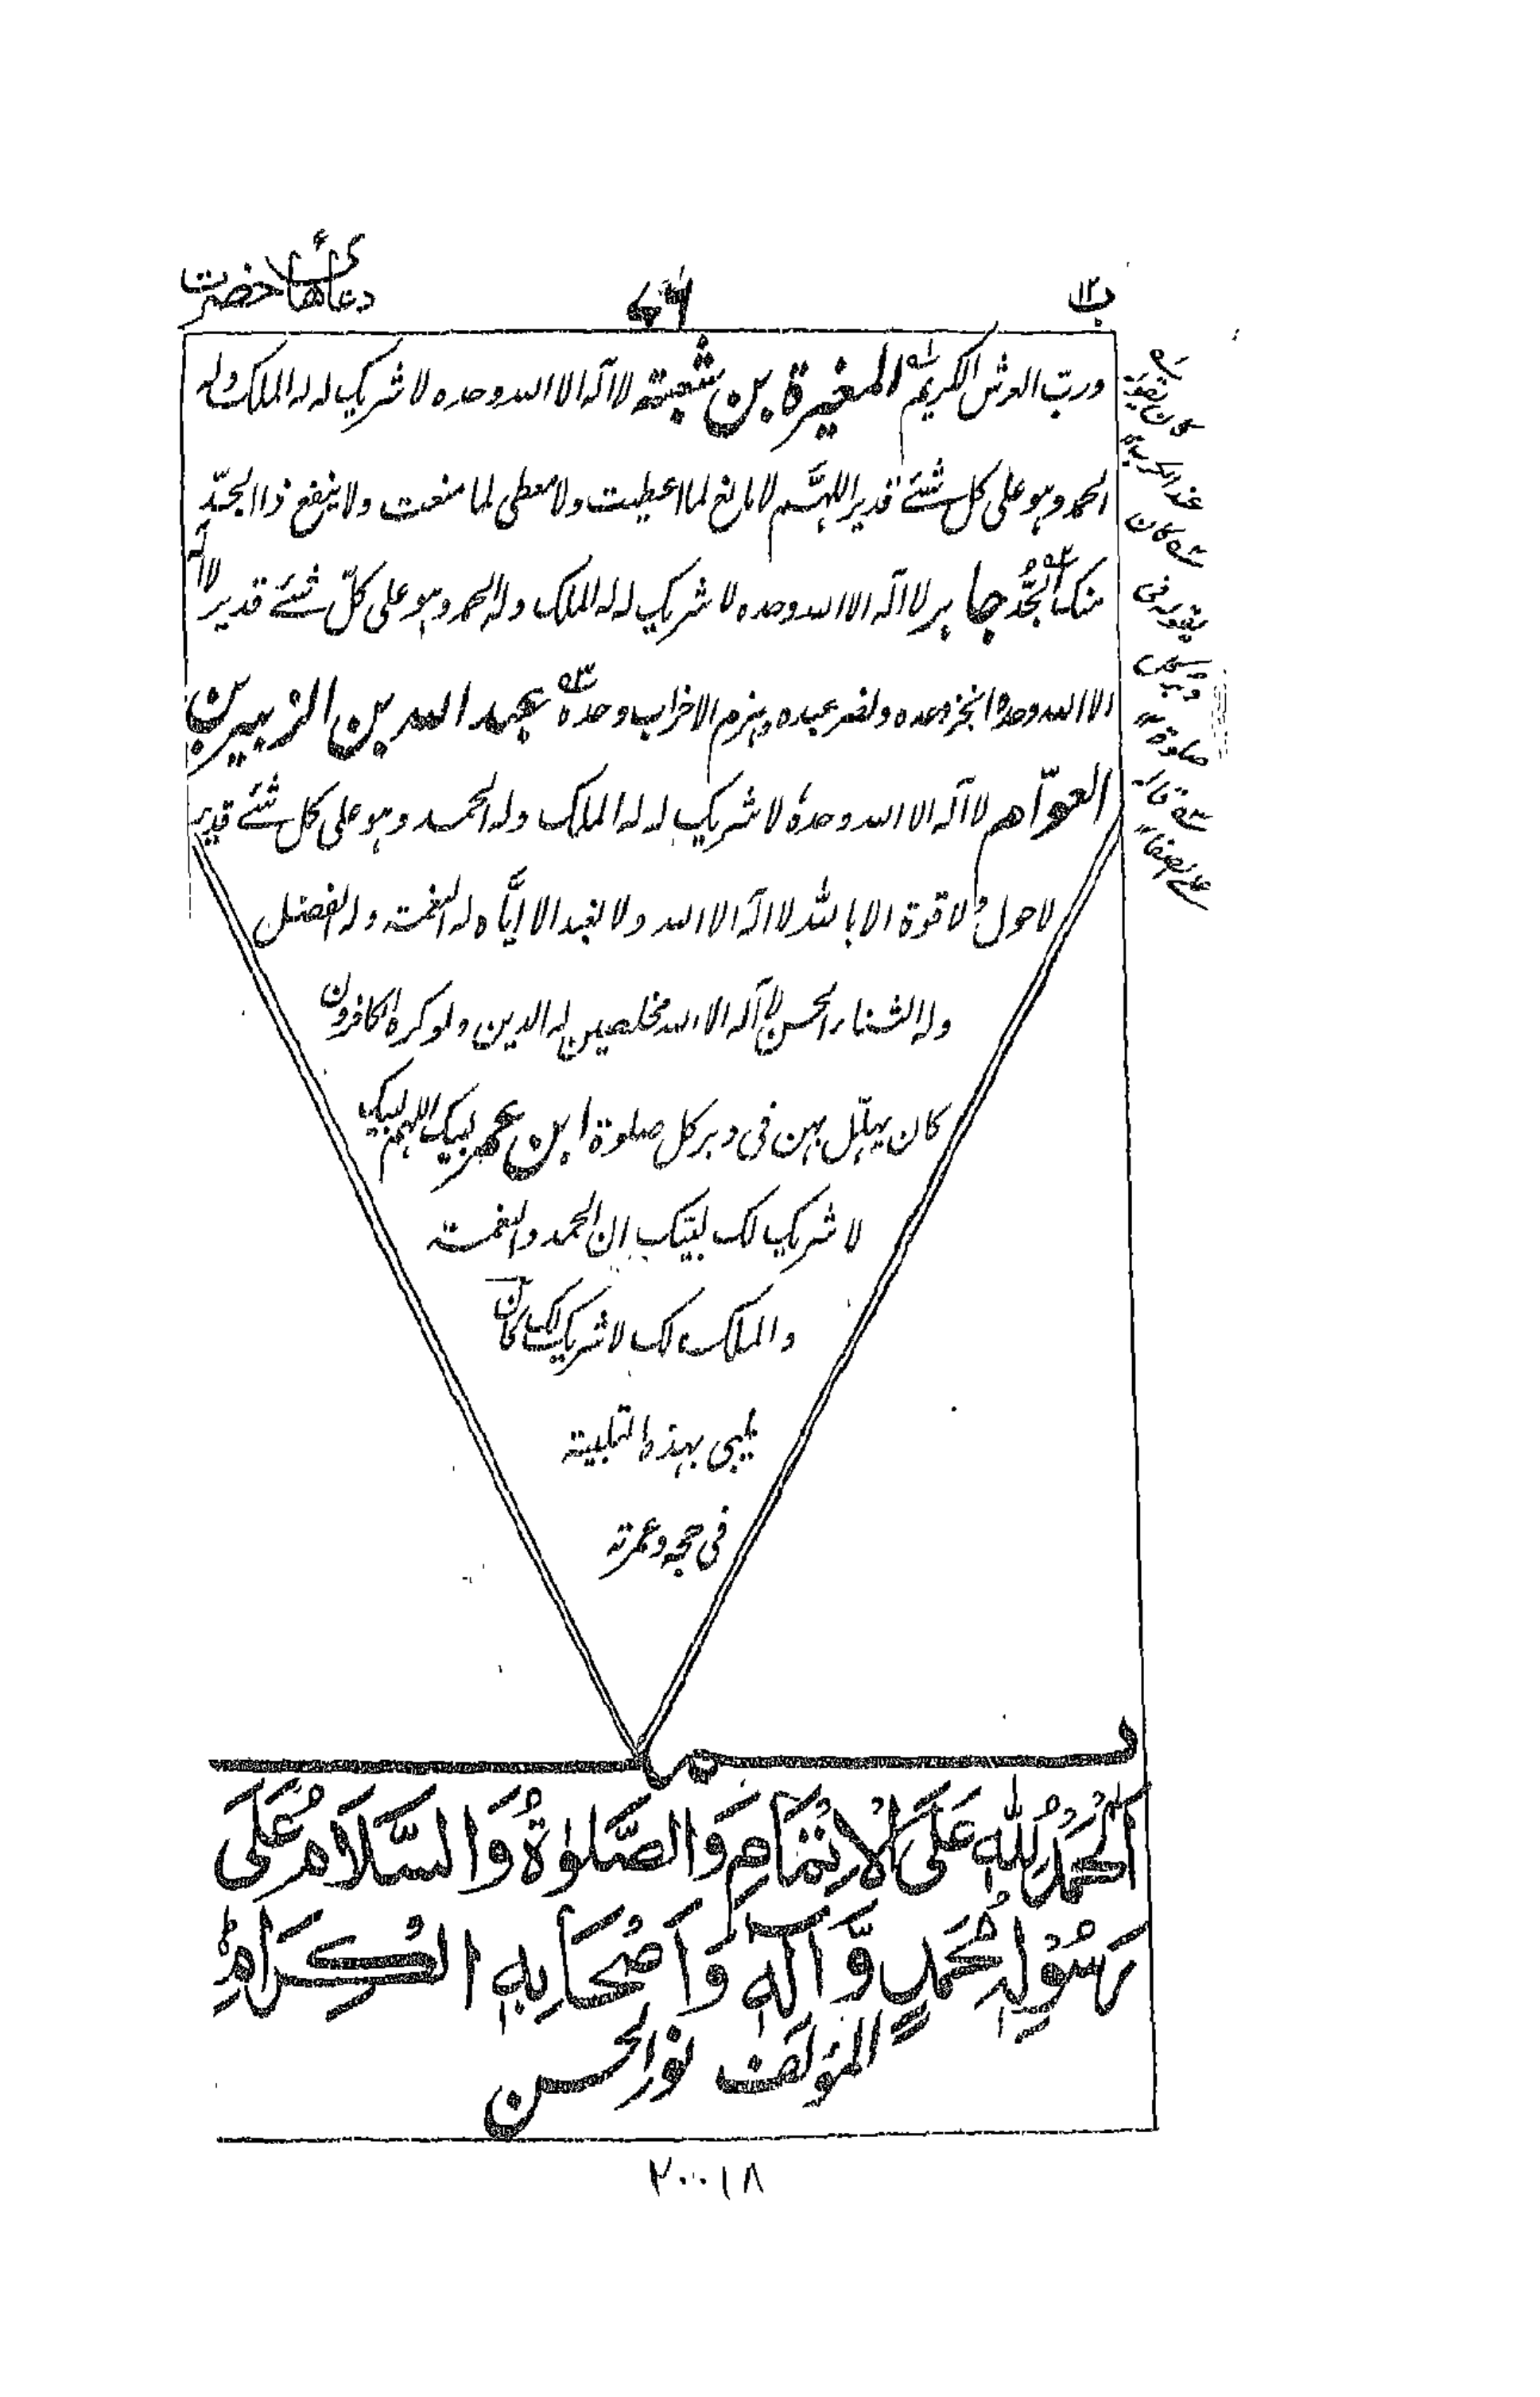 ب۱۲
دعاهائ حضرت
ورب العرش الکریم المغیرة بن شعبة لا اله الا الله وحده لا شریک له له الملک وله
الحمد وهو علی کل شئ قدیر اللهم لا مانع لما اعطیت ولا معطی لما منعت ولا ینفع ذا الجد
منک الجد جابر لا اله الا الله وحده لا شریک له له الملک وله الحمد وهو علی کل شئ قدیر لا اله
الا الله وحده انجز وعده ونصر عبده وهزم الاحزاب وحده عبد الله بن الزبیر بن
العوام لا اله الا الله وحده لا شریک له له الملک وله الحمد وهو علی کل شئ قدیر
لا حول ولا قوة الا بالله لا اله الا الله ولا نعبد الا ایاه له النعمة وله الفضل
وله الثناء الحسن لا اله الا الله مخلصین له الدین ولو کره الکافرون
کان یهلل بهن فی دبر کل صلوة ابن عمر لبیک اللهم لبیک
لا شریک لک لبیک ان الحمد والنعمة
والملک لک لا شریک لک کان
یلبی بهذه التلبیة
فی حجه وعمرته
کان یقوله
عند الکرب
کان
یقوله فی
دبر کل
صلوة
قاله
علی الصفا
تم
اَلْحَمْدُ لِلّٰهِ عَلَی الْاِتْمَامِ وَالصَّلٰوةُ وَالسَّلَامُ عَلٰی
رَسُوْلِهٖ مُحَمَّدٍ وَّآلِهٖ وَاَصْحَابِهِ الْکِرَامِ
المؤلف نور الحسن
۲۰۰۱۸